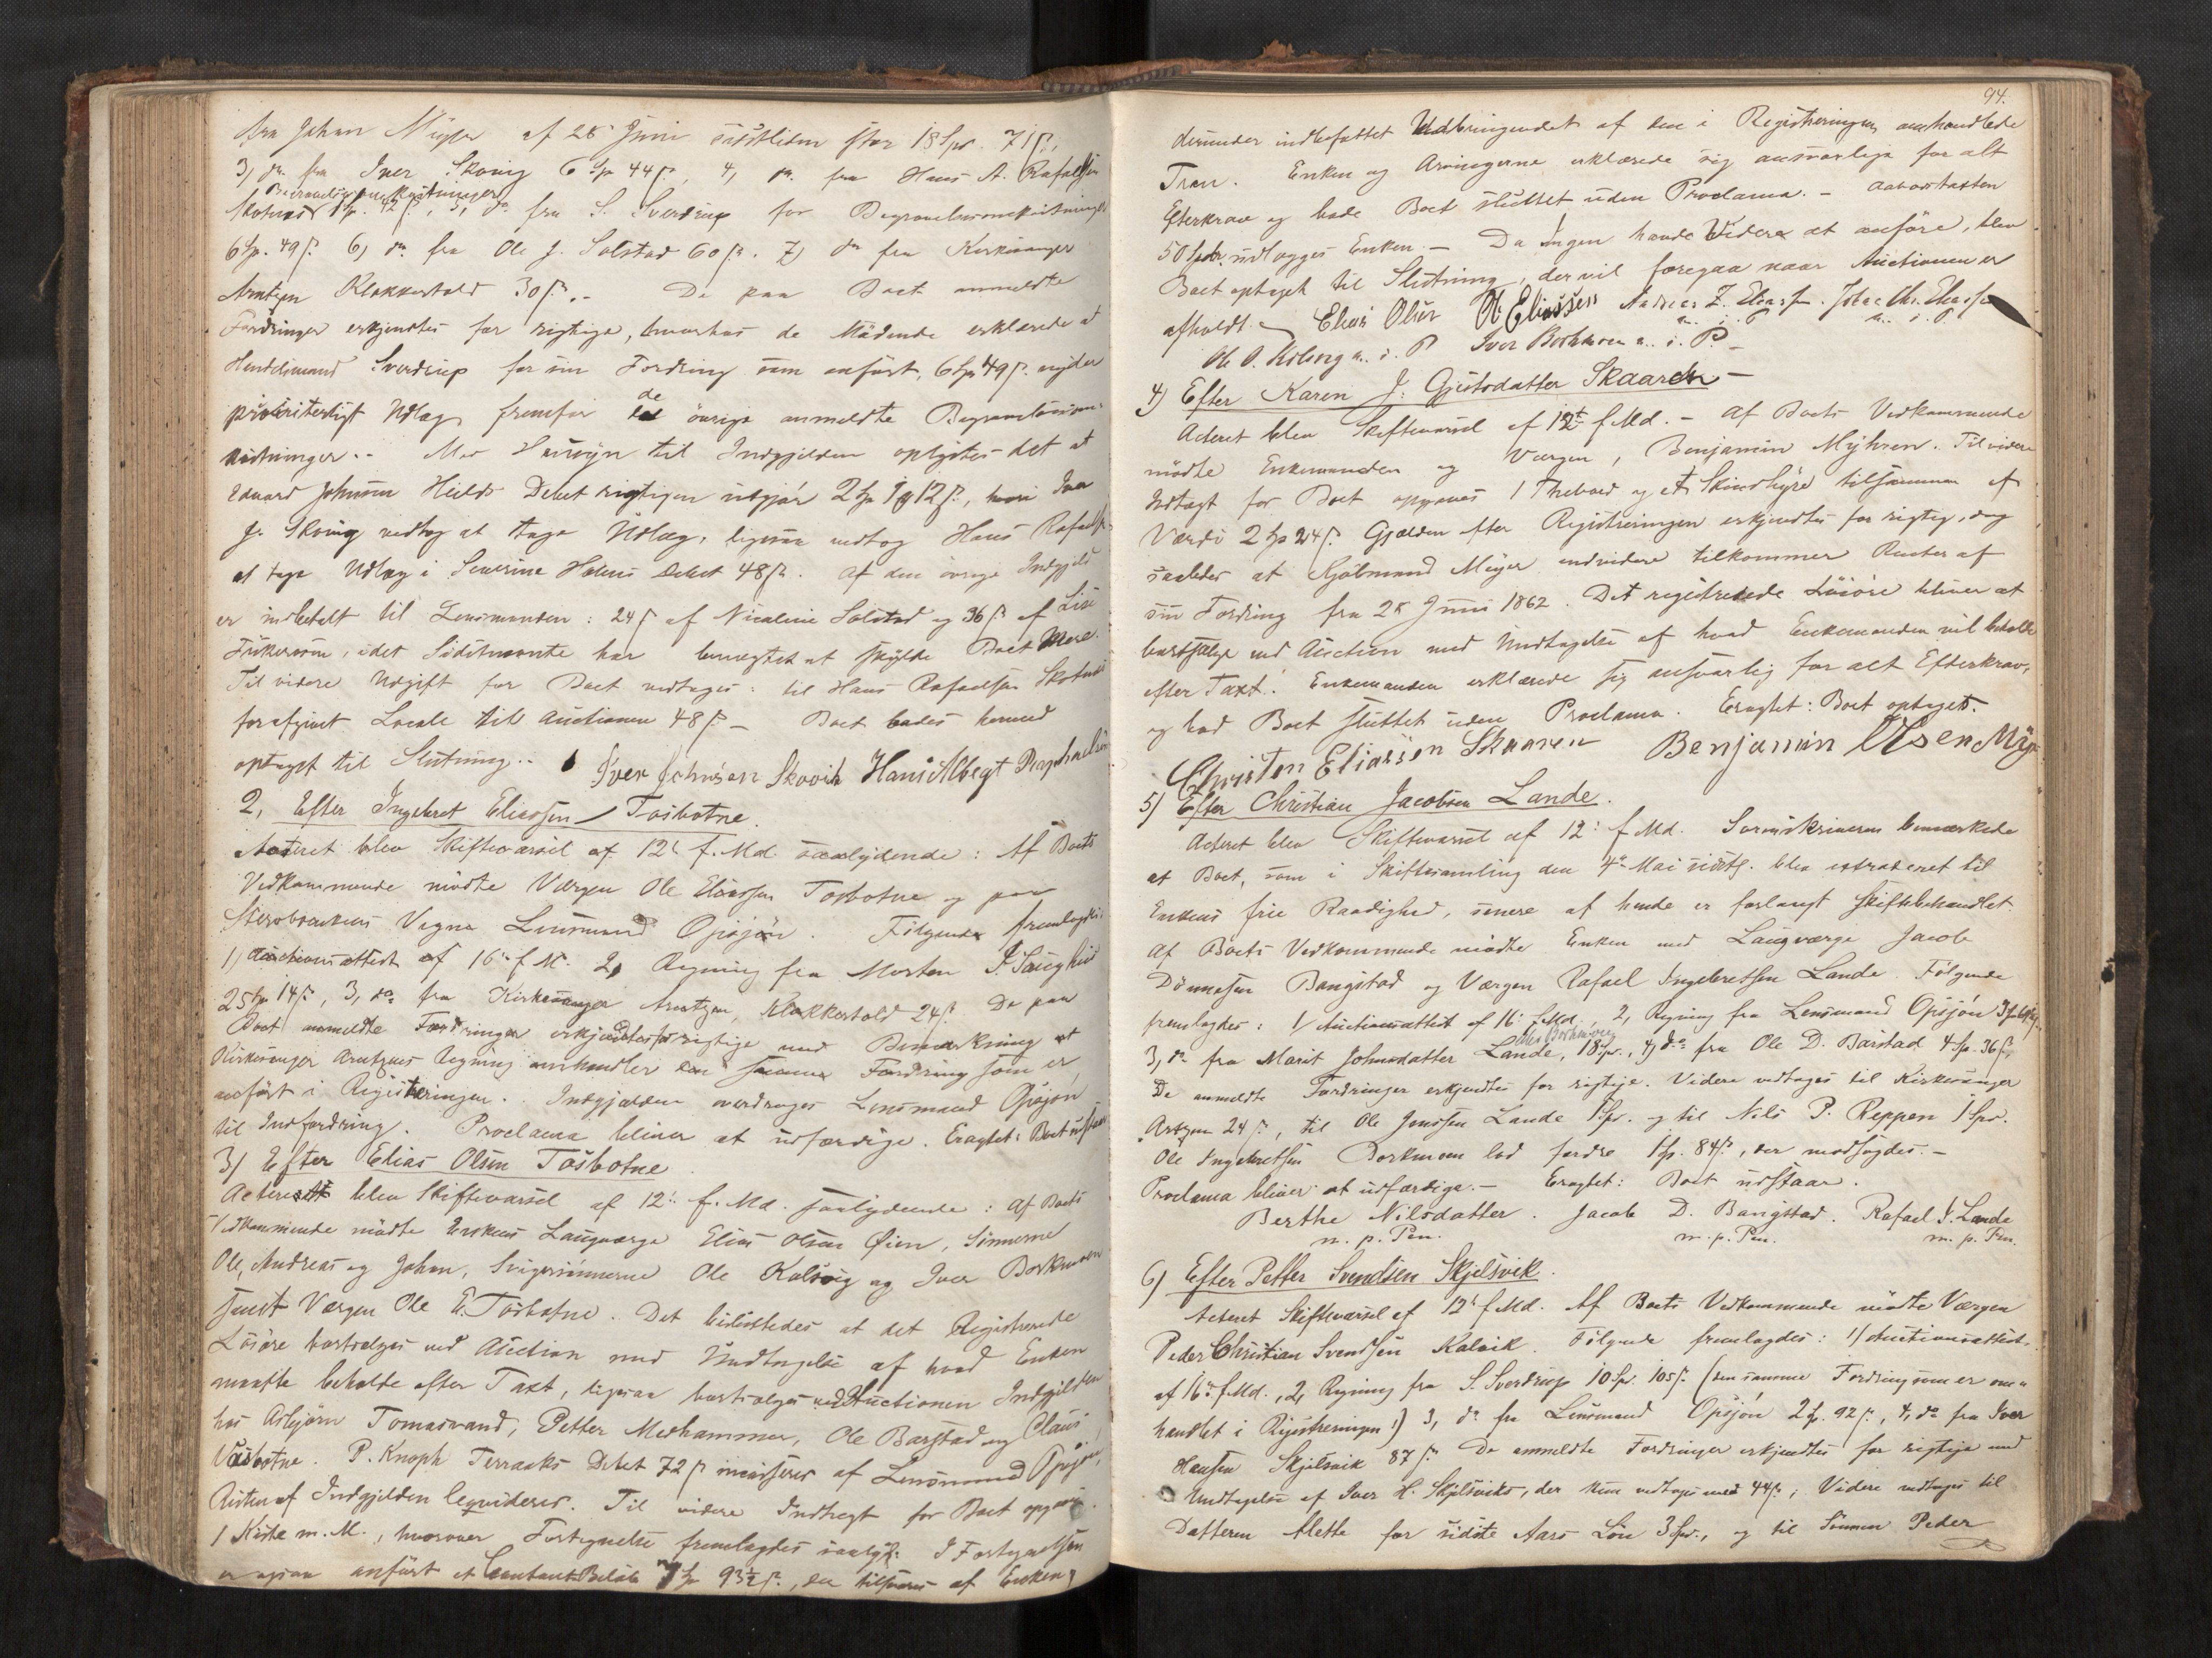 fra Johan Meyer af 28 Juni sidstleden stor 18 Spd. 71 ß;
3) do. fra Iver Skovig 6 Sp 44 ß, 4, do. fra Hans A. Rafaelsen
Begravelsesomkostninger
Skotnes 1 Sp. 42 ß, 5, do fra S. Sverdrup for Begravelsesomkostninger
6 Sp. 49 ß 6) do. fra Ole J. Solstad 60 ß. 7) do fra Kirkesanger
Arntzen Klokkertold 30 ß. - De paa Boet anmeldte
Fordringer erkjendtes for rigtige, hvorhos de Mødende erklærede at
Handelsmand Sverdrup for sin Fordring som anført, 6 Sp 49 ß. nyder
prioriteterligt Udlæg fremfor de øvrige anmeldte Begravelsesom-
kostninger. - Med Hensyn til Indgjælden oplystes det at
Edvard Johnsen Heilds Debet rigtigen udgjør 2 Sp 1 12 ß, hvori Iver
J. Skovig vedtog at tage Udlæg, ligesaa vedtog Hans Rafaels.
at tage Udlæg i Severine Holms Debet 48 ß. Af den øvrige Indgjeld
er indbetalt til Lensmanden: 24 ß af Nicoline Solstad og 36 ß af Lise
, idet Sidstnævnte har benegtet at skylde Boet Mere.
Til videre Udgift for Boet vedtages: til Hans Rafaelsen Skotnes
for afgivet Locale til Auctionen 48 ß - Boet bades hermed
optaget til Slutning. - Iver Johnsen Skovik Hans Albegt Raphaelsen
2, Efter Ingebret Eliassen Tosbotne.
Acteret blev Skiftevarsel af 12t f. Md. saalydende: Af Boets
Vedkommende mødte Værgen Ole Eliassen Tosbotne og paa
Stervboenkens Vegne Lensmand Opsjøn. Følgende fremlagdes:
1) Auctionsattest af 16de f. M. 2, Regning fra Morten J.
25 Sp 14 ß, 3, do fra Kirkesanger Arntzen, Klokkertold 24 ß. De paa
Boet anmeldte Fordringer erkjendtes for rigtige med Bemærkning at
Kirkesanger Arntzens Regning omhandler den samme Fordring som er
anført i Registeringen. Indgjælden overdrages Lensmand Opsjøn
til Indfordring. Proclama bliver at udfærdige. Eragtet: Boet udstaar
3) Efter Elias Olsen Tosbotne
Acteret blev Skiftevarsel af 12t f. Md. saalydende: Af Boets
Vedkommende mødte Enkens Laugværge Elias Olsen Øien, Sønnerne
Ole, Andreas og Johan, Svigersønnerne Ole Kolsvig og Iver Borkmoen
samt Værgen Ole E. Tosbotne. Det besluttedes at det Registrerede
Løsøre bortsælges ved Auction med Undtagelse af hvad Enken
maatte beholde efter Taxt, ligesaa bortsælges ved Auctionen Indgjelden
hos Asbjørn Tomasvand, Petter Medhammer, Ole Barstad og Claus
Vasbotne. P. Knoph Terraaks Debet 72 ß incasseres af Lensmand Opsjøn,
Resten af Indgjelden leqvideres. Til videre Indtægt for Boet opgaves
1 Kiste m. M., hvorover Fortegnelse fremlagdes saalyd: I Fortegnelsen
er ogsaa anført et Contant Beløb 7 Sp 93½ ß., der tilsvares af Enken,
94.
derunder indbefattet Udbringendet af den i Registreringen omhandlede
Tran. Enken og Arvingerne erklærede sig ansvarlige for alt
Efterkrav og bade Boet sluttet uden Proclama. - Aabodstaxten
50 Spdr. udlægges Enken. - Da Ingen havde Videre at anføre, blev
Boet optaget til Slutning, der vil foregaa naar Auctionen er
afholdt. Elias Olsen Ol. Eliassen Andreas Z. Eliass. Johan Chr. Eliassen
m. i. P. m. i. P.
Ole O. Kolsvig m. i. P Iver Borkmoen m. i. P. -
4) Efter Karen J. Gjertsdatter Skaaren -
Acteret blev Skiftevarsel af 12t f. Md. - Af Boets Vedkommende
mødte Enkemanden og Værgen, Benjamin Myhren. Til videre
Indtægt for Boet opgaves 1 Thebord og et Skindhyre tilsammen af
Værdi 2 Sp 24 ß. Gjælden efter Registreringen erkjendtes for rigtig, dog
saaledes at Kjøbmand Meyer endvidere tilkommer Renter af
sin Fordring fra 28 Juni 1862. Det registrerede Løsøre bliver at
bortsælge ved Auction med Undtagelse af hvad Enkemanden vil beholde
efter Taxt. Enkemanden erklærede sig ansvarlig for alt Efterkrav,
og bad Boet sluttet uden Proclama. Eragtet: Boet optages.
Christen Eliassen Skaaren Benjamin Olsen Myr
5) Efter Christian Jacobsen Lande.
Acteret blev Skiftevarsel af 12t f. Md. Sorenskriveren bemærkede
at Boet, som i Skiftesamling den 4de Mai sidstl. blev extraderet til
Enkens frie Raadighed, senere af hende er forlangt skiftebehandlet.
Af Boets Vedkommende mødte Enken med Laugværge Jacob
Dønnesen Bangstad og Værgen Rafael Ingebretsen Lande. Følgende
fremlagdes: 1/ Auctionsattest af 16de f. Md., 2, Regning fra Lensmand Opsjøn 3
Borkmoen
3, do fra Marit Johnsdatter Lande, 18 Sp., 4) do fra Ole D. Barstad 4 Sp. 36 ß
De anmeldte Fordringer erkjendtes for rigtige. Videre vedtoges til Kirkesanger
Arntzen 24 ß, til Ole Jenssen Lande 1 Spd. og til Nils P. Reppen 1 Spd.
Ole Ingebretsen Borkmoen lod fordre 1 Sp. 84 ß, der modsagdes. -
Proclama bliver at udfærdige. - Eragtet: Boet udstaar.
Berthe Nilsdatter. Jacob D. Bangstad. Rafael I. Lande
m. p. Pen. m. p. Pen. m. p. Pen.
6) Efter Petter Svendsen Skjelsvik.
Acteret Skiftevarsel af 12t f. Md. Af Boets Vedkommende mødte Værgen
Peder Christian Svendsen Kalvik. Følgende fremlagdes: 1/ Auctionsattest
af 16de f. Md., 2, Regning fra S. Sverdrup 10 Sp. 105 ß. (den samme Fordring som er om-
handlet i Registreringen!) 3, do fra Lensmand Opsjøn 2 Sp. 92 ß, 4, do fra Iver
Hansen Skjelsvik 87 ß. De anmeldte Fordringer erkjendtes for rigtige med
Undtagelse af Iver H. Skjelsviks, der kun vedtages med 44 ß; Videre vedtages til
Datteren Alette for sidste Aars Løn 3 Spd., og til Sønnen Peder